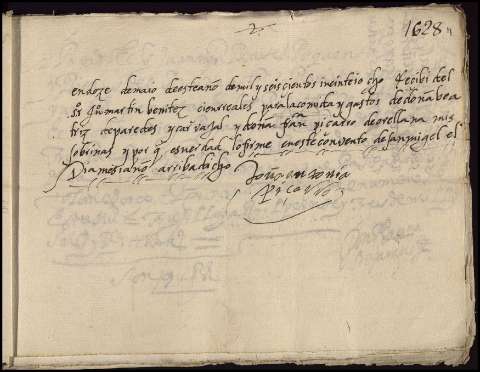 2
1628
en doze de maio de este ano de mil y seiscientos i veinteiocho Recibi del
sr Gu martin benitez cien reales para la comida y gastos de doña bea
triz de paredes y carvajal y doña fran picarro de orellana mis
sobrinas y por q es verdad lo firme en este convento de san migel el
Dia mes i año arriba dicho
Antonia
Picarro